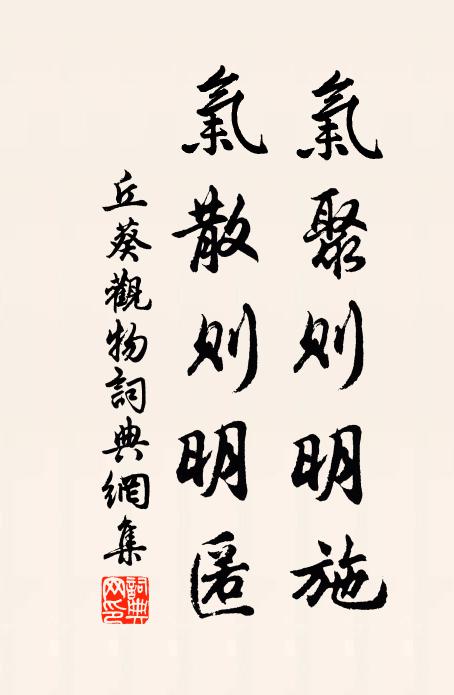 氣聚則明施
氣散則明匿
丘葵觀物詞典網集
詞典網印